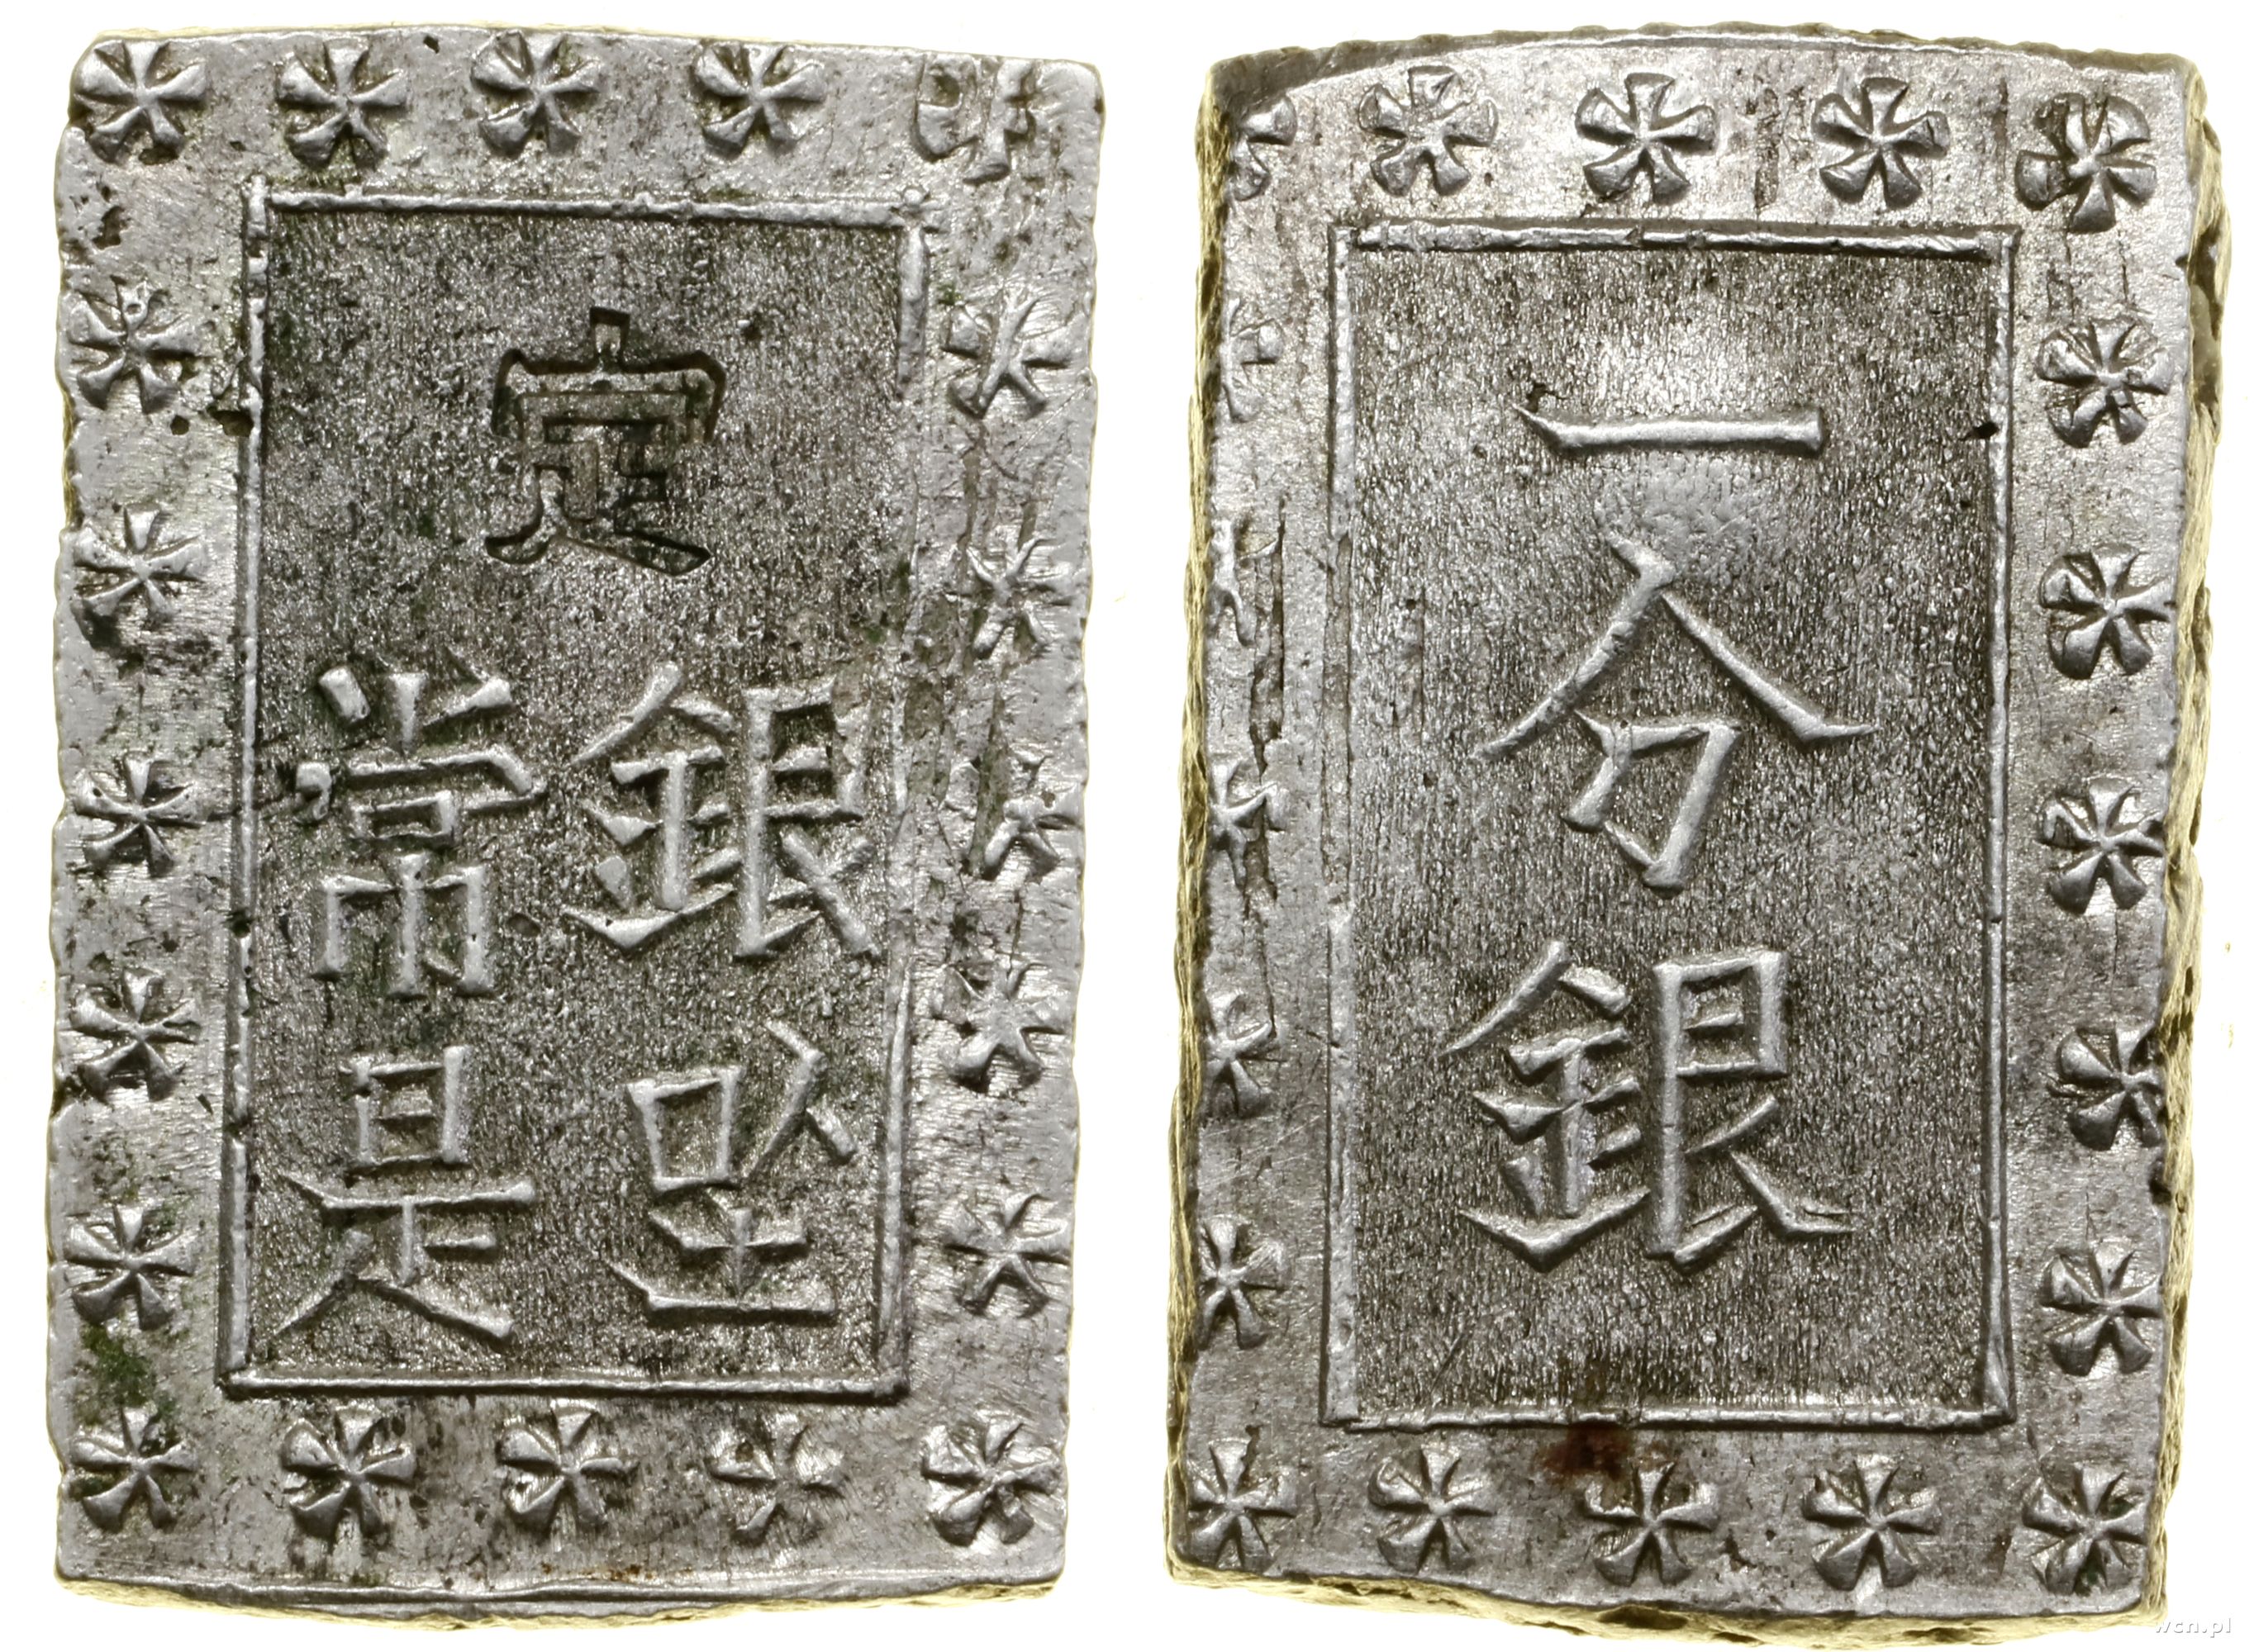 定
銀座
常是
一分銀
wcn.pl